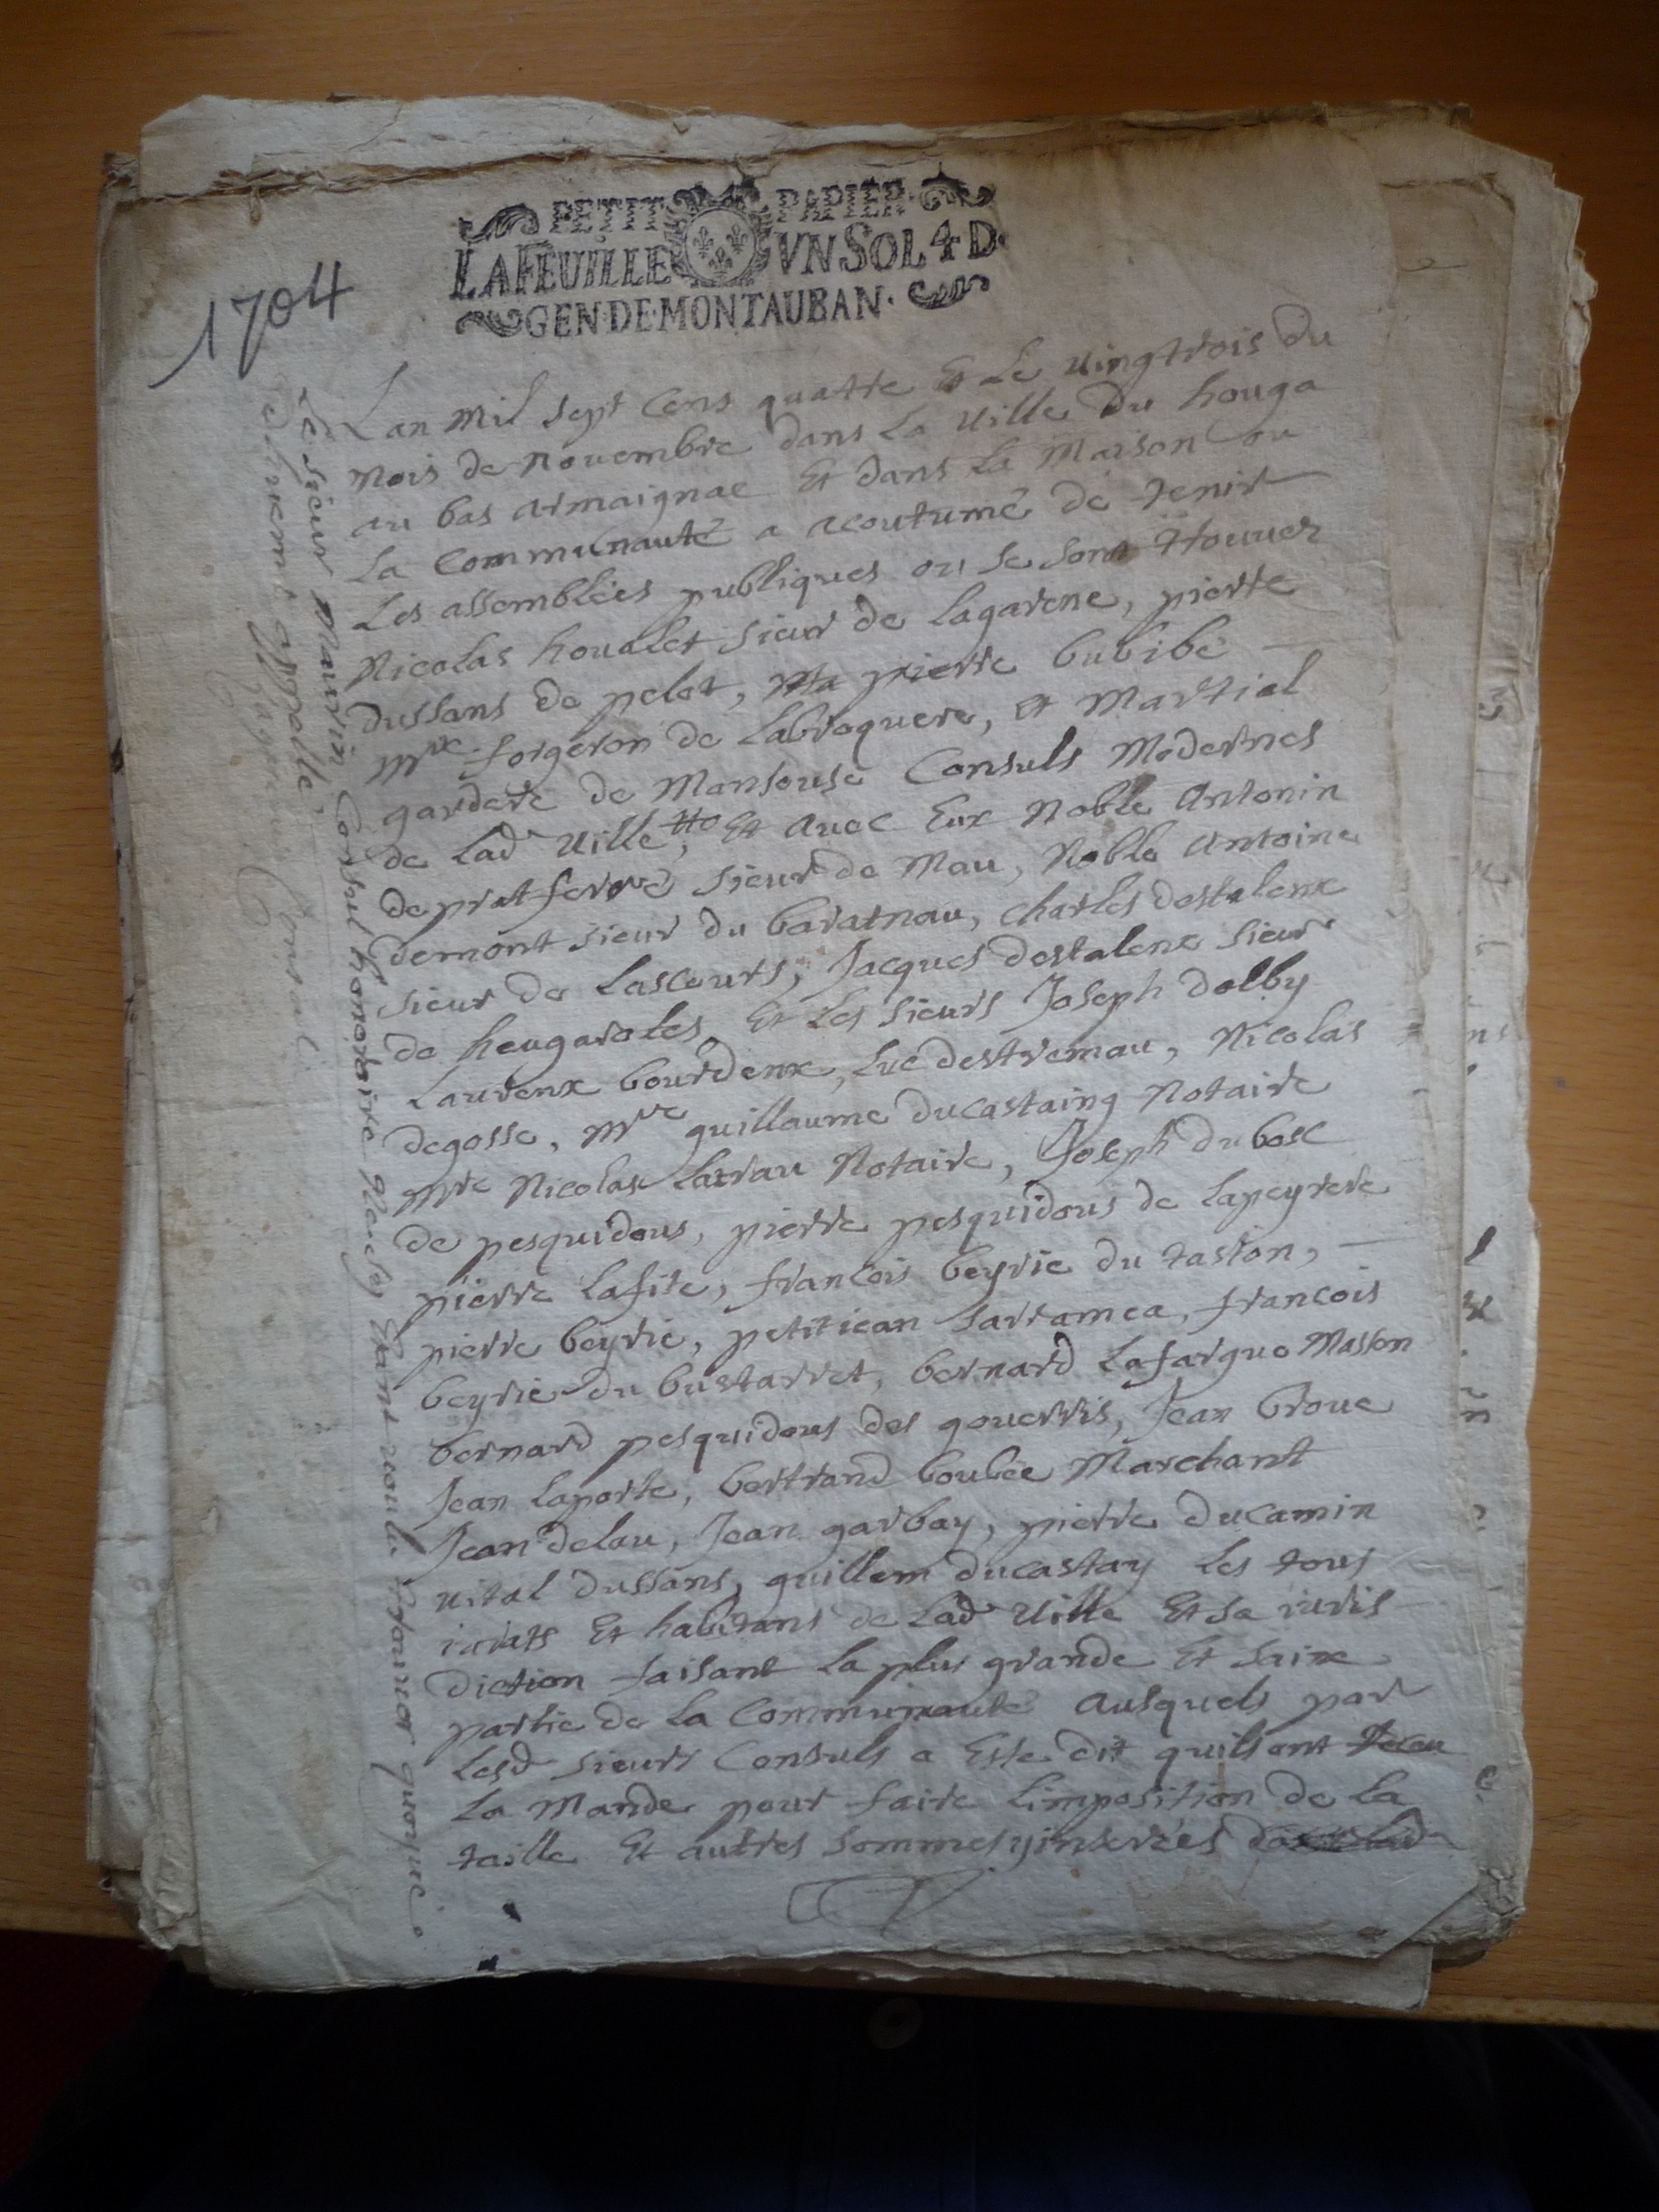 PETIT PAPIER
LA FEUILLE VN SOL 4 D.
GEN. DE. MONTAUBAN.
1704
Lan Mil sept Cens quatre Et Le Vingtrois du
Mois de Novembre dans La Ville du houga
au bas armaignac Et dans La Maison ou
La Communauté a acoutumé de tenir
Les assemblées publiques ou se sont trouvez
Nicolas houalet sieur de Lagarene, pierre
dussans de pelot, pierre bubibé
Mre forgeron de Labroquere, et Martial
gardere de Mansouse Consuls Modernes
de Lad Ville, Et avec Eux Noble Antonin
de pratferré sieur de Mau, Noble Antoine
demont sieur du baratnau, charles destalenx
sieur de Lascourts, Jacques destalenx sieur
de heugaroles Et Les sieurs Joseph dolby
Laurenx bourdenx, Luc destremau, Nicolas
degosse, Mre guillaume ducastaing Notaire
Mre Nicolas Notaire, Joseph dubosc
de pesquidous, pierre pesquidous de Lapeyrere
pierre Lafite, francois beyrie du taston,
pierre beyrie, petit iean sarramea, francois
beyrie du bustarret, bernard Lafargue Masson
bernard pesquidous des gouerris, Jean broue
Jean Laporte, bertrand boubée Marchant
Jean delau, Jean garbay, pierre ducamin
vital dussans, guillem ducastay Les tous
iurats Et habitans de Lad Ville Et sa iuris
diction faisant La plus grande Et saine
partie de La Communauté Ausquels par
Lesd sieurs Consuls a Este dit quils ont receu
La Mande pour faire Limposition de La
taille Et autres sommes y inserées
Le sieur Mauvin Consul honoraire Nestant voulu trouver quoyque
deuement appellé